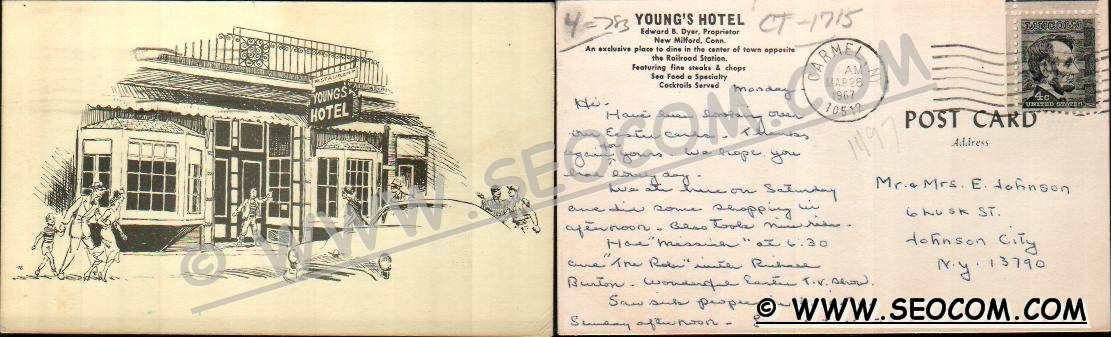 RESTAURANT
YOUNG'S
HOTEL
© WWW.SEOCOM.COM
4=783
CT-1715
YOUNG'S HOTEL
Edward B. Dyer, Proprietor
New Milford, Conn.
An exclusive place to dine in the center of town opposite
the Railroad Station.
Featuring fine steaks & chops
Sea Food a Specialty
Cocktails Served
Monday
Hi-
Have been looking over
our Easter cards. Thanks
again for yours. We hope you
had lovely day.
We ate here on Saturday
and did some shopping in
afternoon. Also took nice ride.
Had "Messiah" at 6.30
and "The Robe" with Richard
Burton. Wonderful Easter T.V. show.
Saw sick people
Sunday afternoon -
CARMEL, N.Y.
AM
MAR 28
1967
10512
LINCOLN
4c
UNITED STATES
POST CARD
Address
1497
Mr. & Mrs. E. Johnson
6 Lusk St.
Johnson City
N.Y. 13790
© WWW.SEOCOM.COM